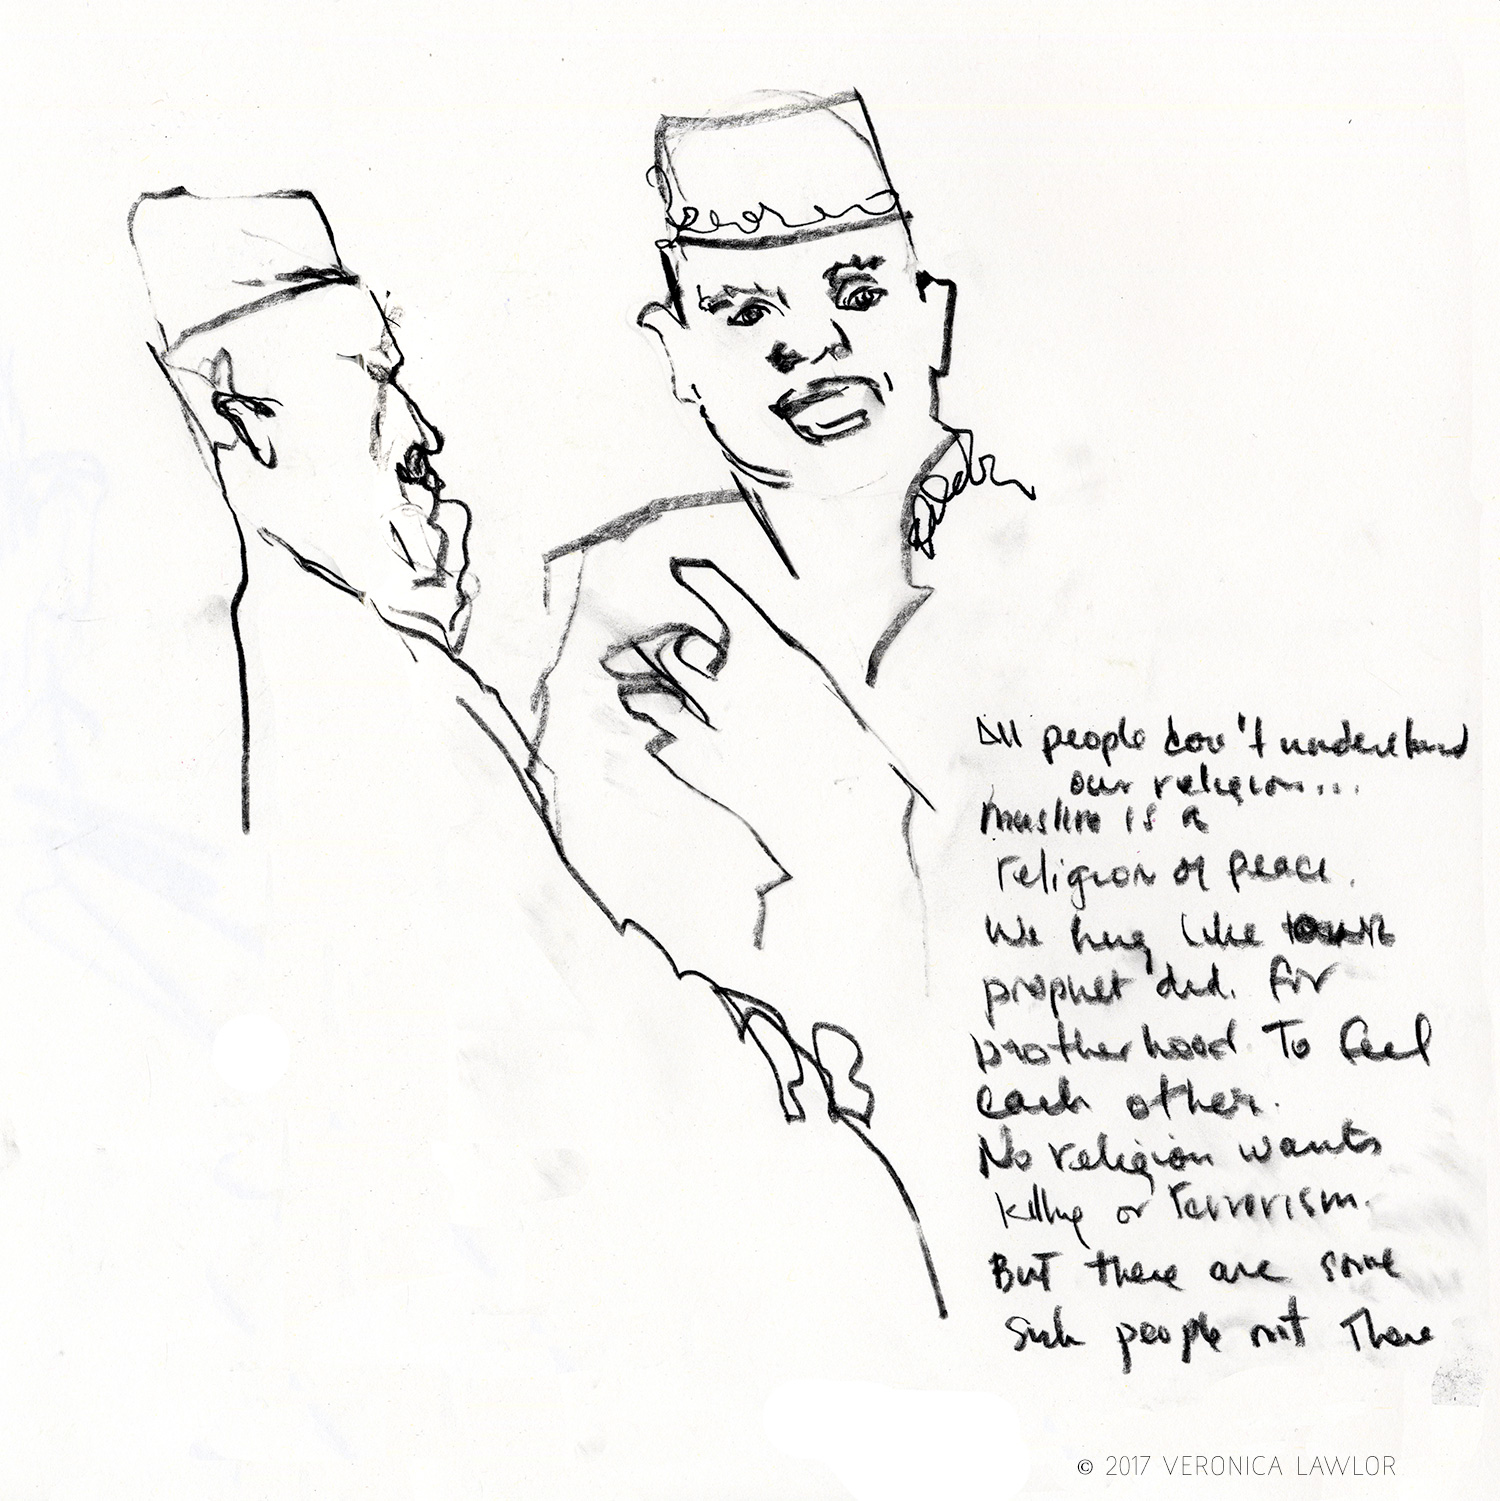 All people don't understand
our religion...
Muslim is a
religion of peace.
We hug like
prophet did. for
brotherhood. To feel
each other.
No religion wants
killing or Terrorism.
But there are some
sick people out There
© 2017 VERONICA LAWLOR